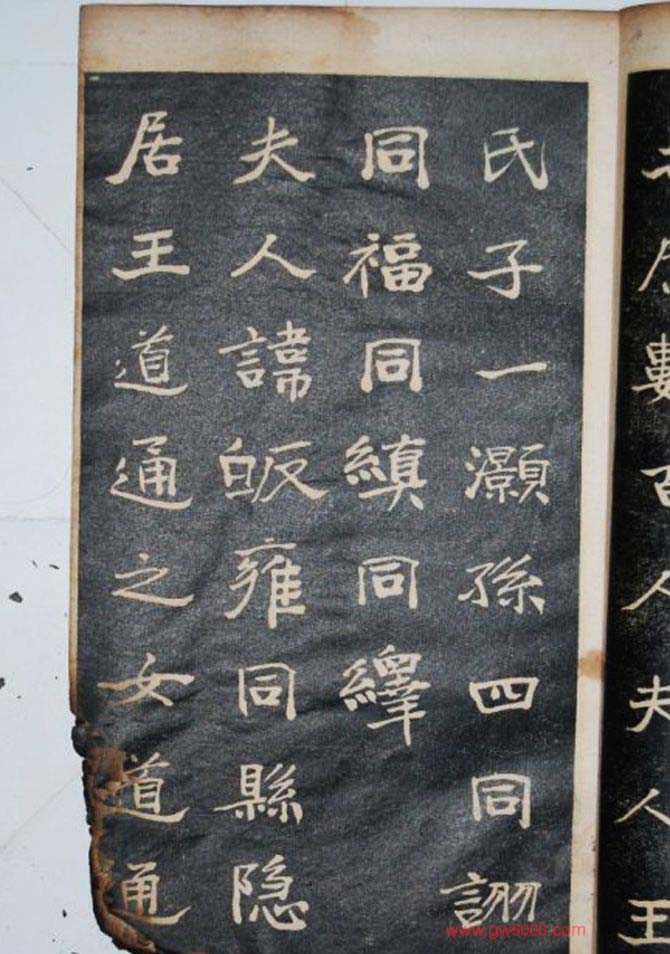 數百人夫人王
氏子一灝孫四同詡
同福同縝同繹
夫人諱皈雍同縣隐
居王道通之女道通